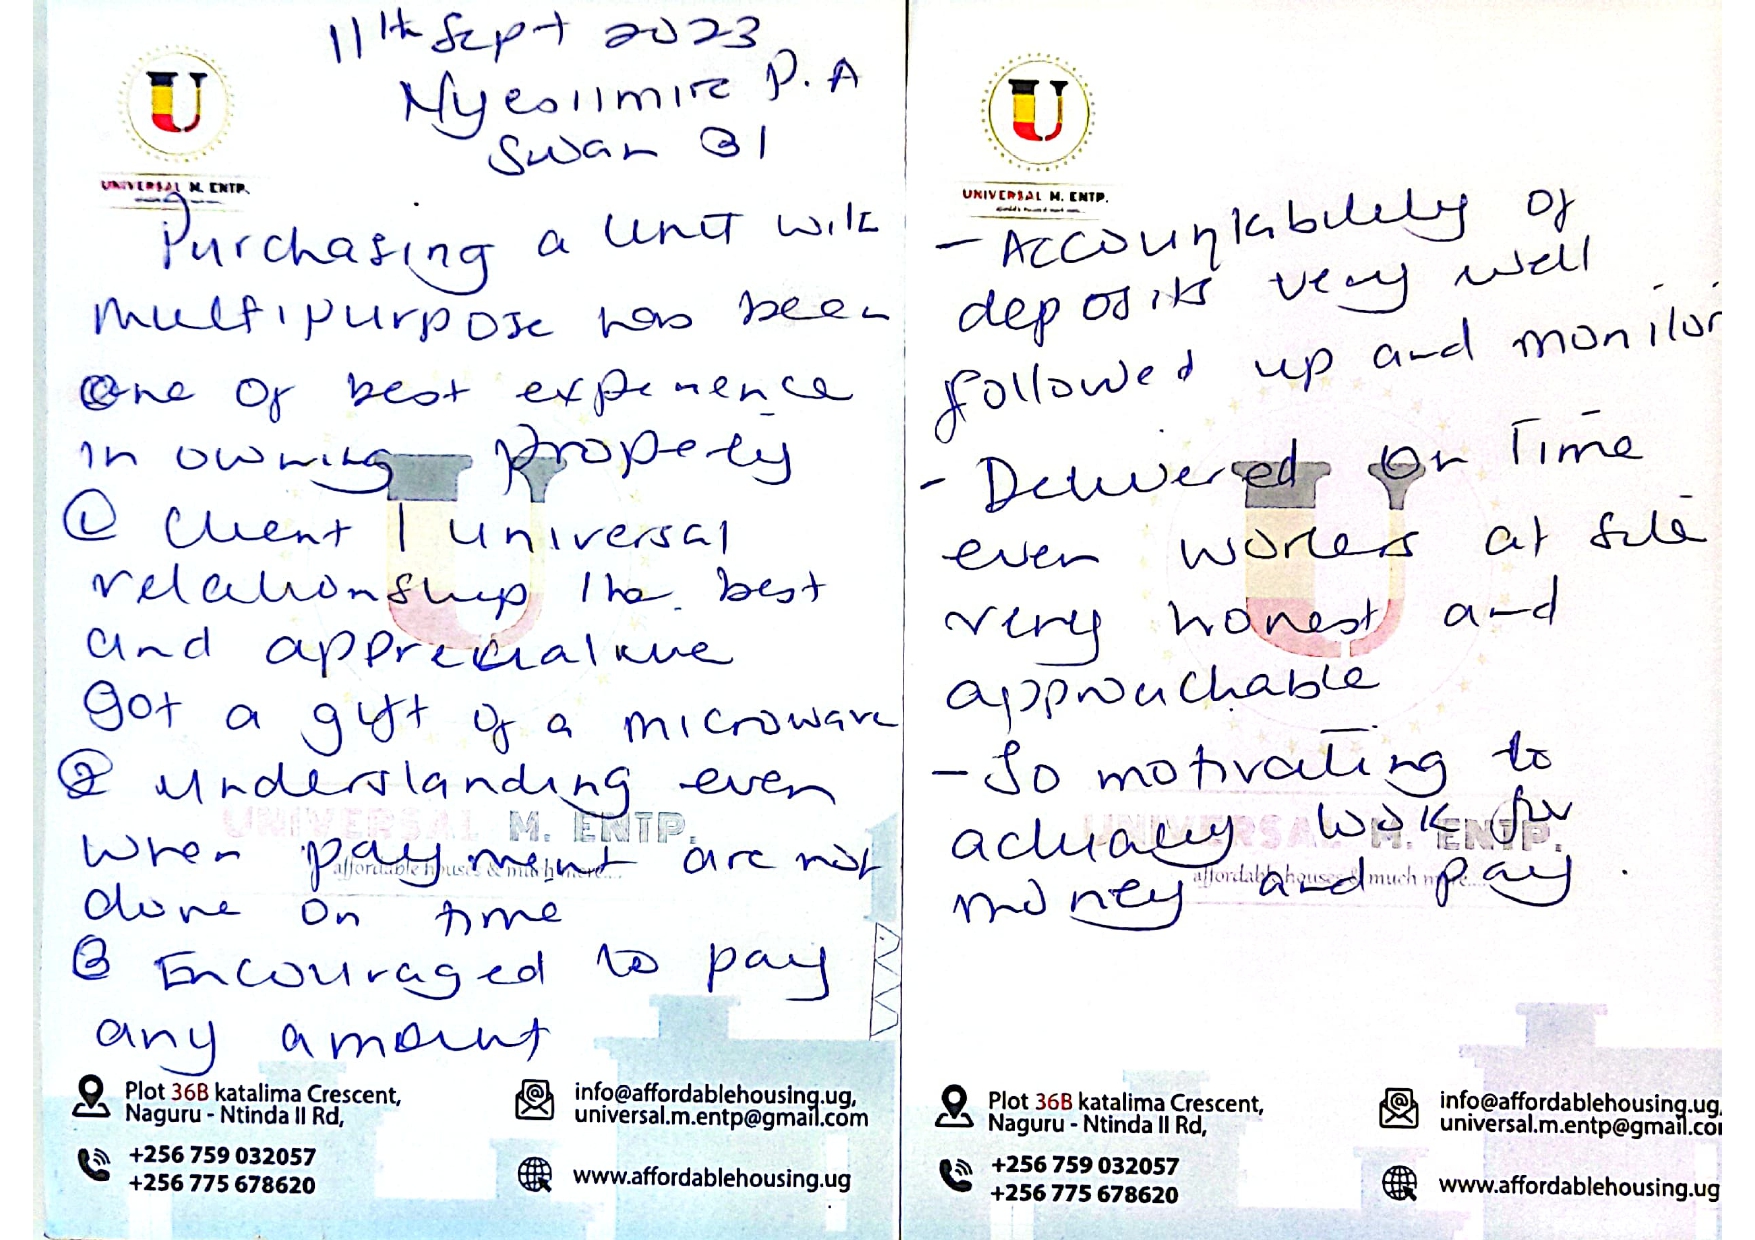 11th Sept 2023
P.A
Swan B1
UNIVERSAL M. ENTP.
Purchasing a unit with
multipurpose has been
one of best experience
in owning property
① Client / universal
relationship the best
and appreciative
got a gift of a microwave
② understanding even
when payment are not
done on time
③ Encouraged to pay
any amount
UNIVERSAL M. ENTP.
affordable houses & much more...
Plot 36B katalima Crescent,
Naguru - Ntinda II Rd,
+256 759 032057
+256 775 678620
info@affordablehousing.ug,
universal.m.entp@gmail.com
www.affordablehousing.ug
UNIVERSAL M. ENTP.
- Accountability of
deposits very well
followed up and monitor
- Delivered on Time
even workers at site
very honest and
approachable
- So motivating to
actually look for
money and pay.
UNIVERSAL M. ENTP.
affordable houses & much more....
Plot 36B katalima Crescent,
Naguru - Ntinda II Rd,
+256 759 032057
+256 775 678620
info@affordablehousing.ug,
universal.m.entp@gmail.co
www.affordablehousing.ug